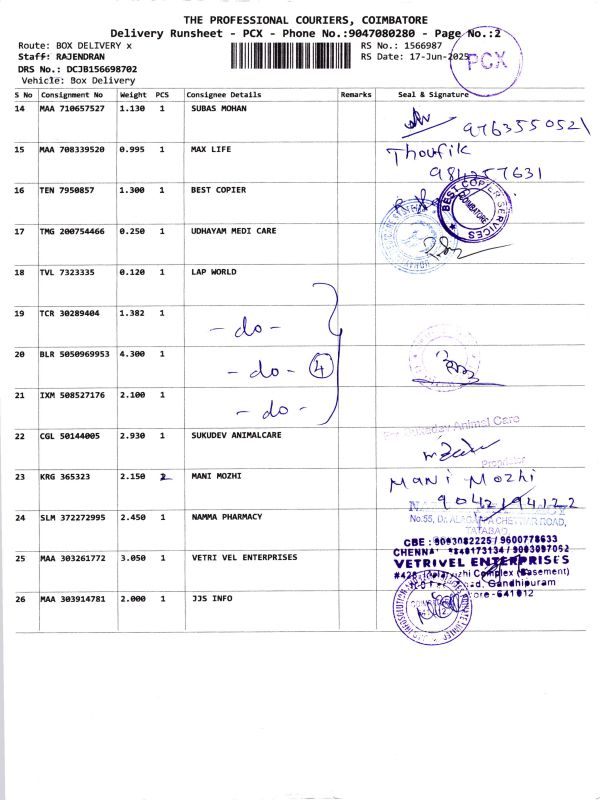 THE PROFESSIONAL COURIERS, COIMBATORE
Delivery Runsheet - PCX - Phone No.:9047080280 - Page No.:2
Route: BOX DELIVERY x RS No.: 1566987
Staff: RAJENDRAN RS Date: 17-Jun-2025
PCX
DRS No.: DCJB156698702
Vehicle: Box Delivery
S No Consignment No Weight PCS Consignee Details Remarks Seal & Signature
14 MAA 710657527 1.130 1 SUBAS MOHAN
9763550521
15 MAA 708339520 0.995 1 MAX LIFE Thoufik
16 TEN 7950857 1.300 1 BEST COPIER
BEST COPIER SERVICES
COIMBATORE
17 TMG 200754466 0.250 1 UDHAYAM MEDI CARE
18 TVL 7323335 0.120 1 LAP WORLD
19 TCR 30289404 1.382 1 - do -
20 BLR 5050969953 4.300 1 - do - 4
21 IXM 508527176 2.100 1 - do -
22 CGL 50144005 2.930 1 SUKUDEV ANIMALCARE
Animal Care
Proprietor
23 KRG 365323 2.150 2 MANI MOZHI Mani Mozhi
24 SLM 372272995 2.450 1 NAMMA PHARMACY
ROAD,
TATABAD
CBE : 9003082225 / 9600778633
25 MAA 303261772 3.050 1 VETRI VEL ENTERPRISES
VETRIVEL ENTERPRISES
Complex (Basement)
Gandhipuram
26 MAA 303914781 2.000 1 JJS INFO
641012